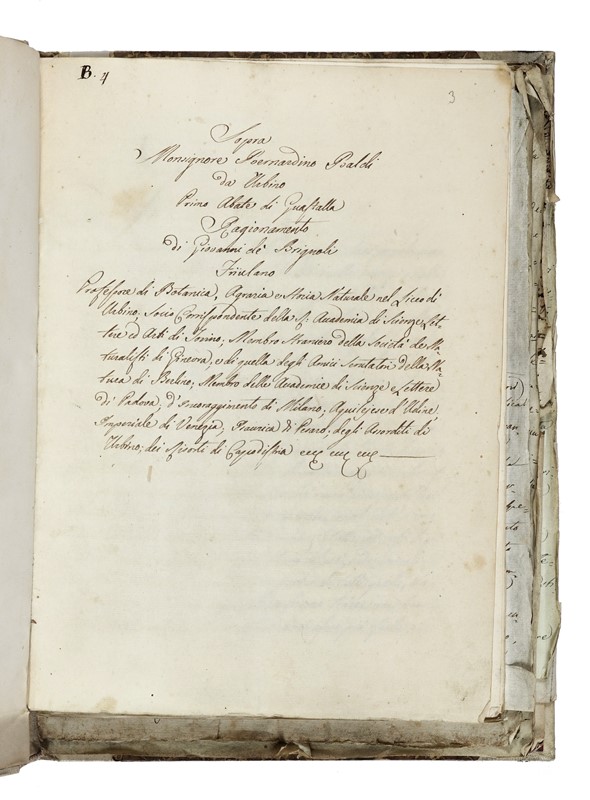 B. 4
3
Sopra
Monsignore Bernardino Baldi
da Urbino
Primo Abate di Guastalla
Ragionamento
di Giovanni de' Brignoli
Friulano
Professore di Botanica, Agraria e Storia Naturale nel Liceo di
Urbino, Socio Corrispondente della R. Academia di Scienze Let-
tere ed Arti di Torino, Membro straniero della Società de' Na-
turalisti di Ginevra, e di quella degli Amici Scrutatori della Na-
tura di Berlino; Membro delle Academie di Scienze e Lettere
di Padova, d'Incoraggimento di Milano, Agustejese d'Udine,
Imperiale di Venezia, Isaurica di Pesaro, degli Assorditi di
Urbino, dei Risorti di Capodistria